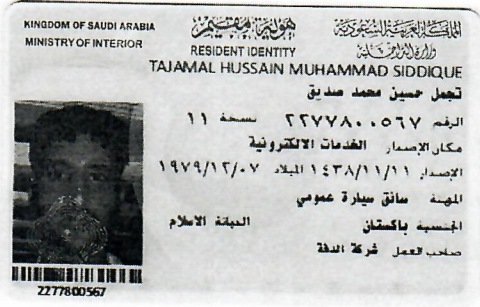 KINGDOM OF SAUDI ARABIA
MINISTRY OF INTERIOR
هوية مقيم
RESIDENT IDENTITY
المملكة العربية السعودية
وزارة الداخلية
TAJAMAL HUSSAIN MUHAMMAD SIDDIQUE
تجمل حسين محمد صديق
الرقم ٢٢٧٧٨٠٠٥٦٧ نسخة ١١
مكان الإصدار الخدمات الالكترونية
الإصدار ١٤٣٨/١١/١١ الميلاد ١٩٧٩/١٢/٠٧
المهنة سائق سيارة عمومي
الجنسية باكستان الديانة الاسلام
صاحب العمل شركة الدفة
2277800567